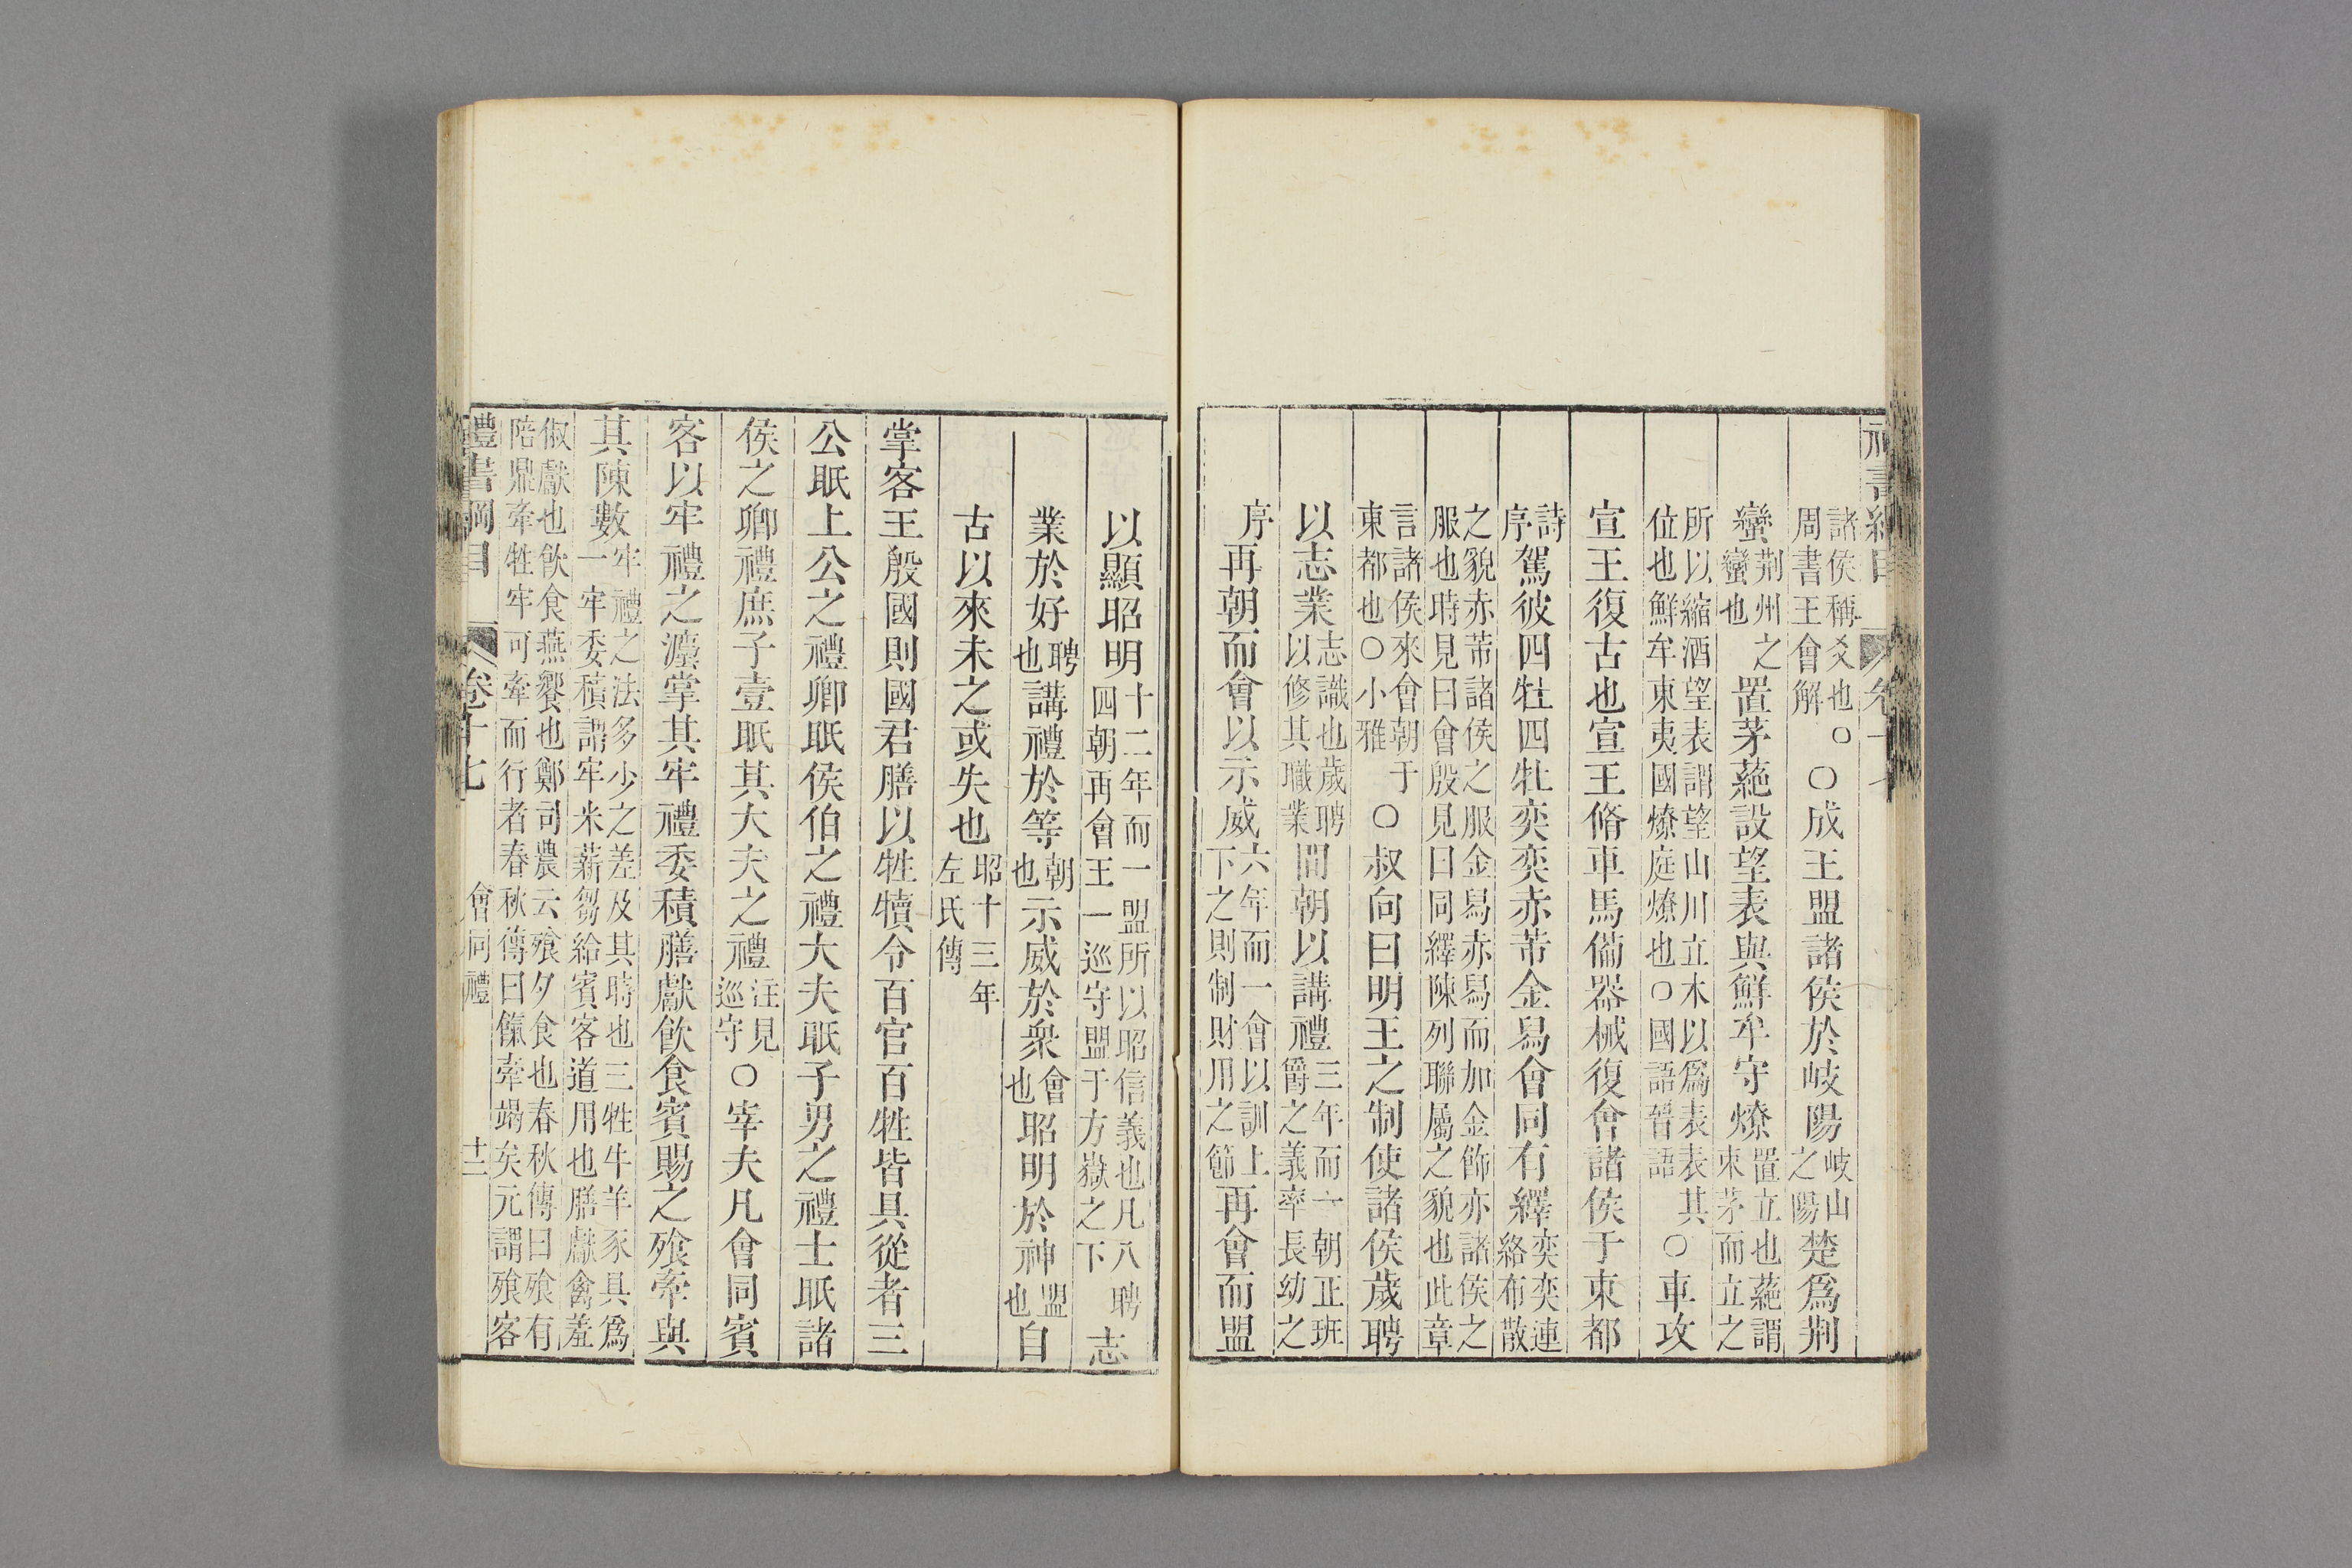 諸侯稱爻也周書王會解○○成王盟諸侯於岐陽岐山之陽楚爲荆
蠻荆州之蠻也置茅蕝設望表與鮮牟守燎置立也蕝謂束茅而立之
所以縮酒望表謂望山川立木以爲表表其位也鮮牟東夷國燎庭燎也○國語晉語○車攻
宣王復古也宣王脩車馬僃器械復會諸侯于東都
詩序駕彼四牡四牡奕奕赤芾金舄會同有繹奕奕連絡布散
之貌赤芾諸侯之服金舄赤舄而加金飾亦諸侯之服也時見曰會殷見曰同繹陳列聯屬之貌也此章
言諸侯來會朝于東都也○小雅○叔向曰明王之制使諸侯歲聘
以志業志識也歲聘以修其職業間朝以講禮三年而一朝正班爵之義率長幼之
序再朝而會以示威六年而一會以訓上下之則制財用之節再會而盟
以顯昭明十二年而一盟所以昭信義也凡八聘四朝再會王一巡守盟于方嶽之下志
業於好聘也講禮於等朝也示威於衆會也昭明於神盟也自
古以來未之或失也昭十三年左氏傳
掌客王殷國則國君膳以牲犢令百官百牲皆具從者三
公眡上公之禮卿眡侯伯之禮大夫眡子男之禮士眡諸
侯之卿禮庶子壹眡其大夫之禮注見巡守○宰夫凡會同賓
客以牢禮之灋掌其牢禮委積膳獻飲食賓賜之飧牽與
其陳數牢禮之法多少之差及其時也三牲牛羊豕具爲一牢委積謂牢米薪芻給賓客道用也膳獻禽羞
俶獻也飲食燕饗也鄭司農云飧夕食也春秋傳曰飧有陪鼎牽牲牢可牽而行者春秋傳曰餼牽竭矣元謂飧客
禮書綱目 卷十七 會同禮 十二